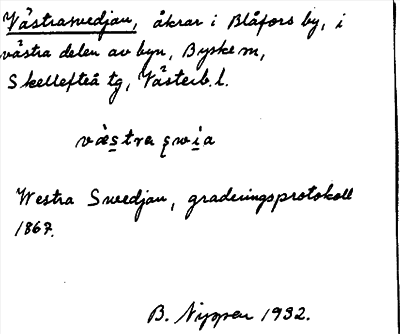 Västrasvedjan, åkrar i Blåfors by, i
västra delen av byn, Byske sn,
Skellefteå tg, Västerb. l.
væ̀stra ʂwia
Westra Svedjan, graderingsprotokoll
1867.
B. Nygren 1932.